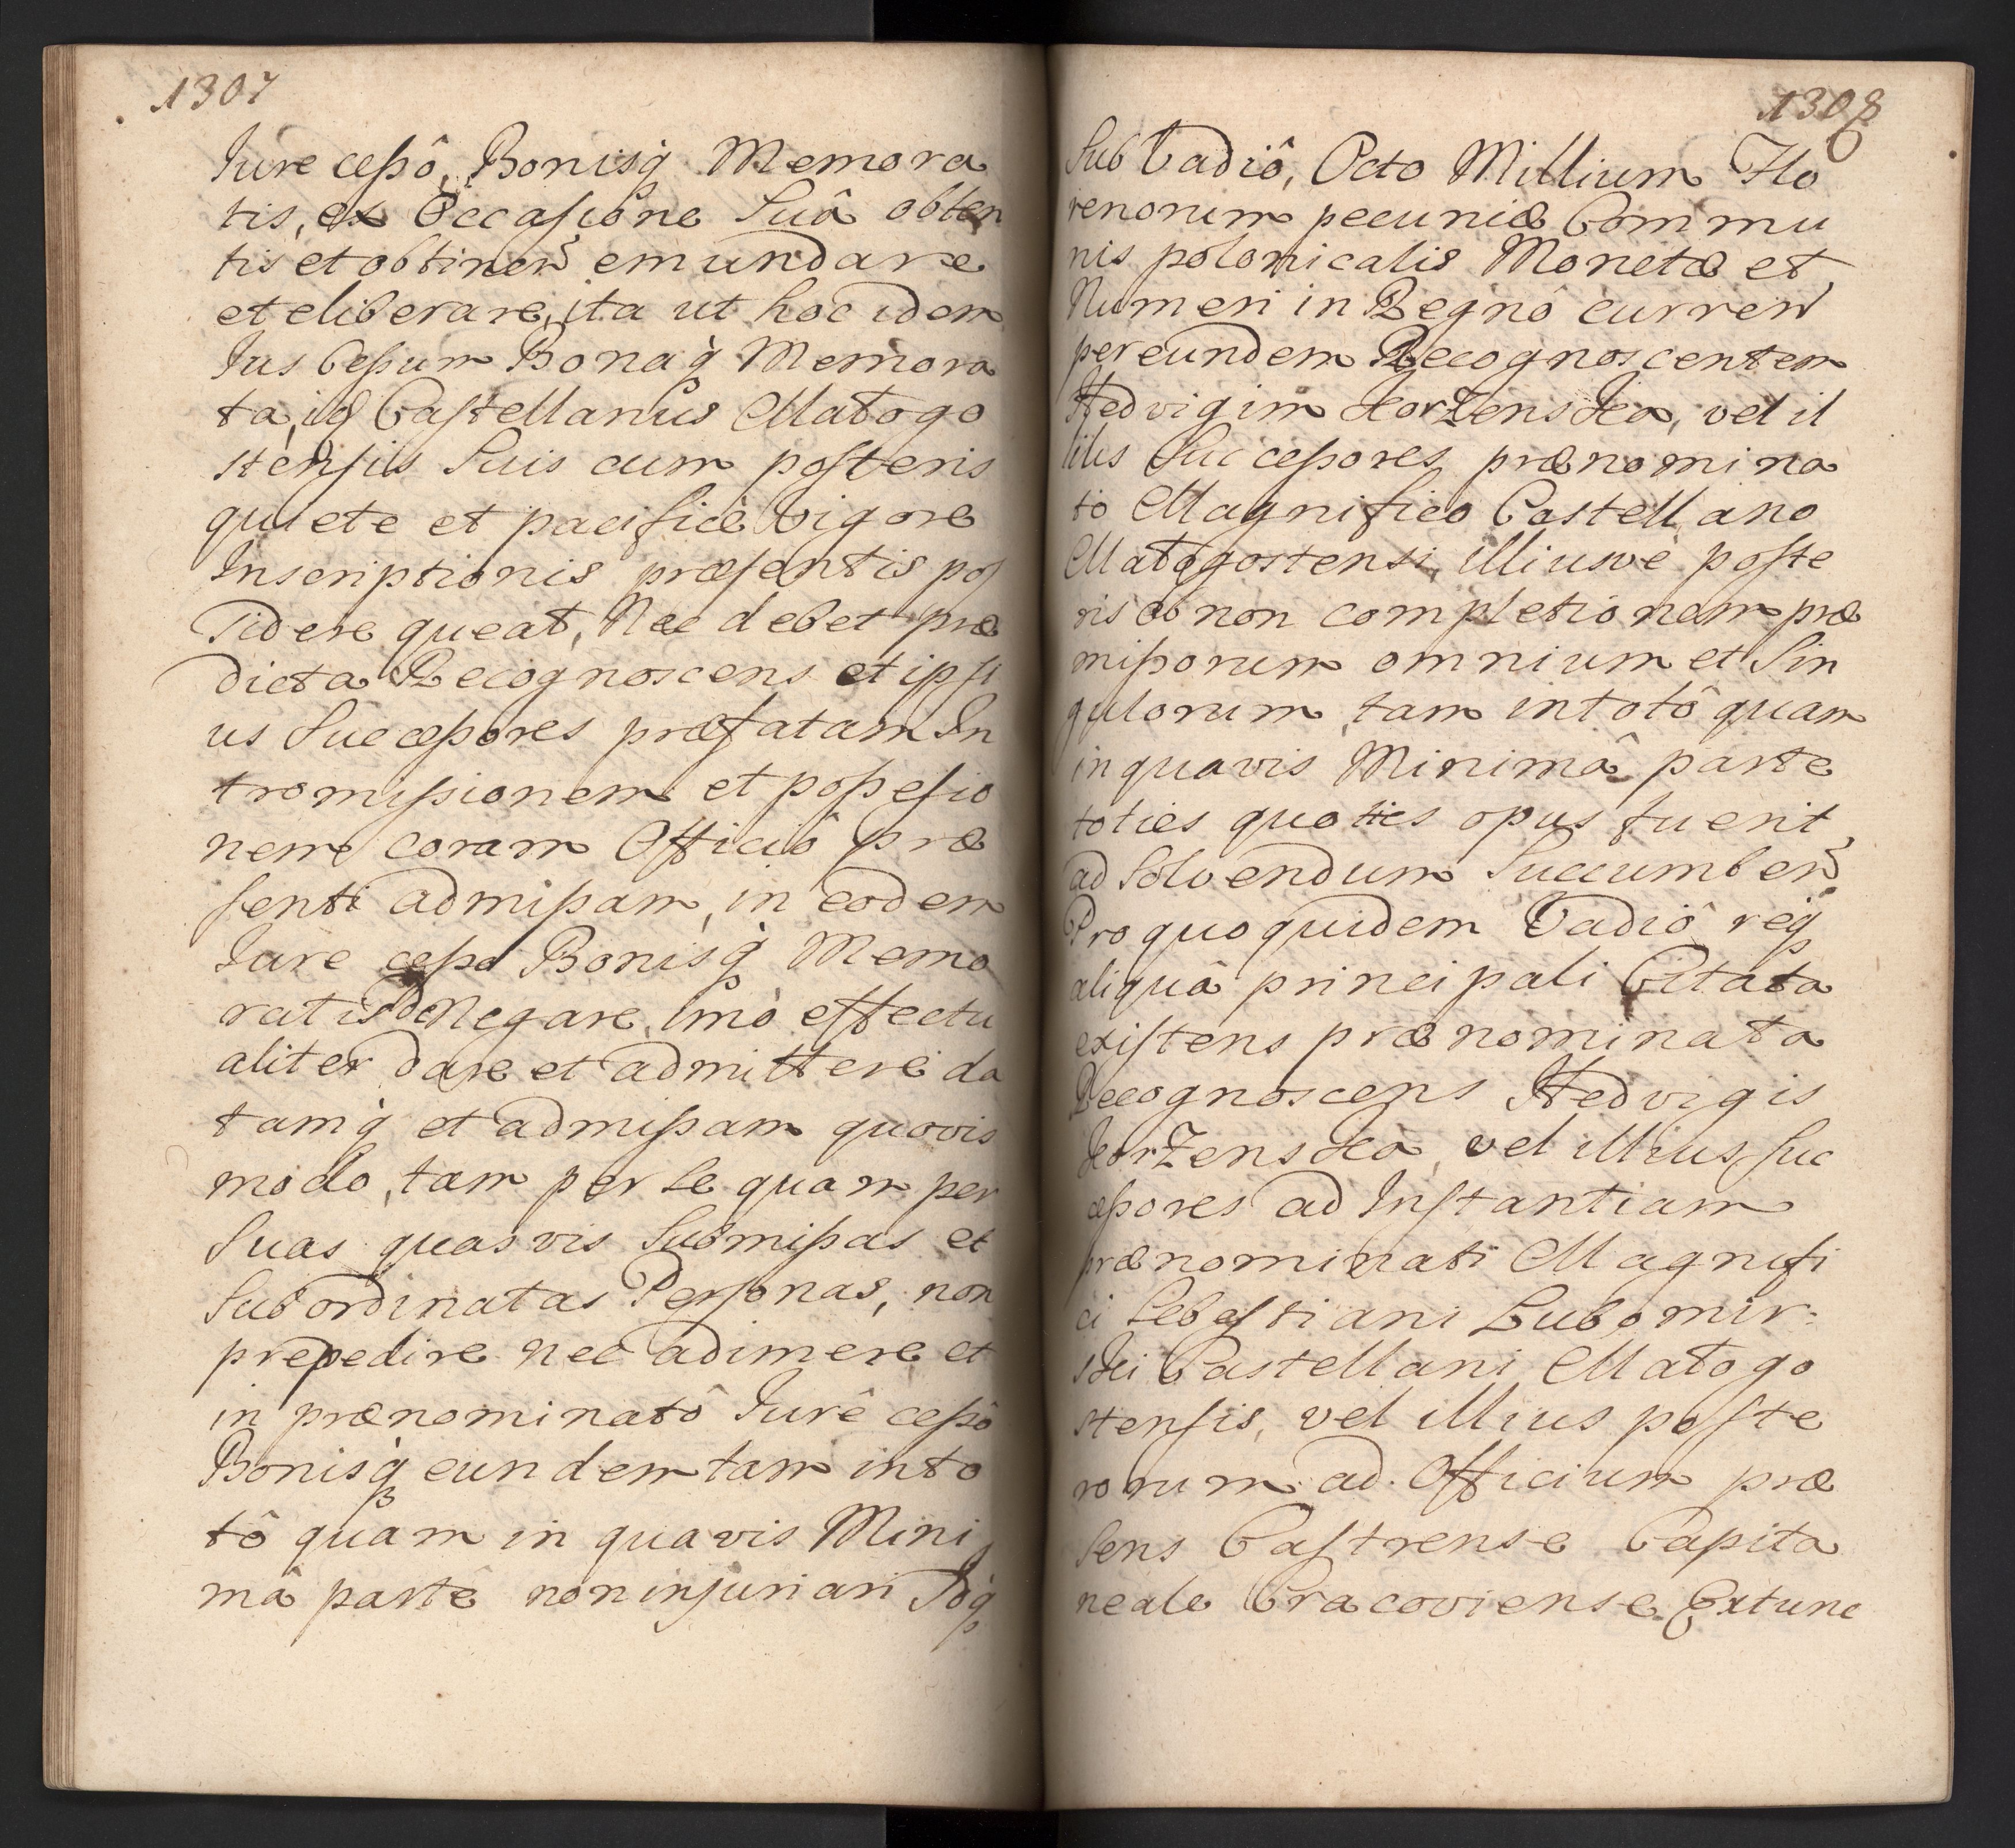 1307
Jure cessô, Bonisq̃ Memora
tis, ex Occasione Suâ obten
tis et obtinen̄ emundare
et eliberare, ita ut hoc idem
Jus Cessum Bonaq̃ Memora
ta, id Castellanus Małogo
stensis Suis cum posteris
quiete et pacificè vigore
Inscriptionis præsentis pos
sidere queat, Nec debet præ
dicta Recognoscens et ipsi
us Successores præfatam In
tromissionem et possessio
nem coram Officiô præ
senti admissam, in eodem
Jure cesso Bonisq̃ Memo
ratis denegare, imò effectu
aliter dare et admittere da
tamq̃ et admissam quovis
modo, tam per se quam per
Suas quasvis Submissas et
Subordinatas Personas, non
prepedire nec adimere et
in prænominatô Jurê cessô
Bonisq̃ eundem tam in to
tô quam in quavis Mini
mâ partê non injuriari Idq̃
1308
Sub Vadiô, Octo Millium Flo
renorum pecuniæ Commu
nis polonicalis Monetæ et
Numeri in Regnô curren̄
per eundem Recognoscentem
Hedvigim Korzenska, vel il
liũs Successores prænomina
to Magnifico Castellano
Małogostensi, illiusvè poste
ris ob non completionem præ
missorum omnium et Sin
gulorum, tam in totô quam
in quavis Minimâ parte
toties quoties opus fuerit,
ad Solvendum Succumben̄
Pro quo quidem Vadiô reiq̃
aliquâ principali Citata
existens prænominata
Recognoscens Hedvigis
Korzenska, vel illius Suc
cessores ad Instantiam
prænominati Magnifi
ci Sebastiani Lubomir:
ski Castellani Małogo
stensis, vel illius poste
rorum ad Officium præ
sens Castrense Capita
neale Cracoviense Extunc